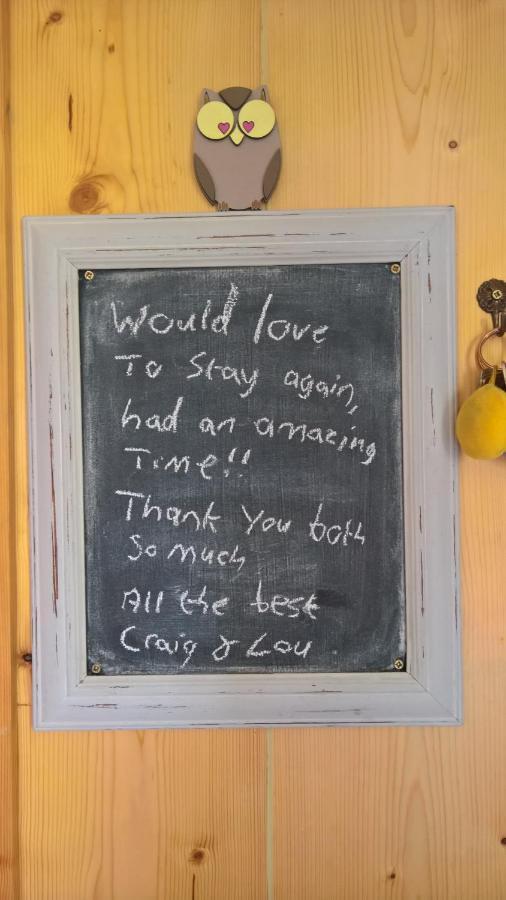 Would love
To Stay again,
had an amazing
Time!!
Thank You both
So much
All the best
Craig & Lou